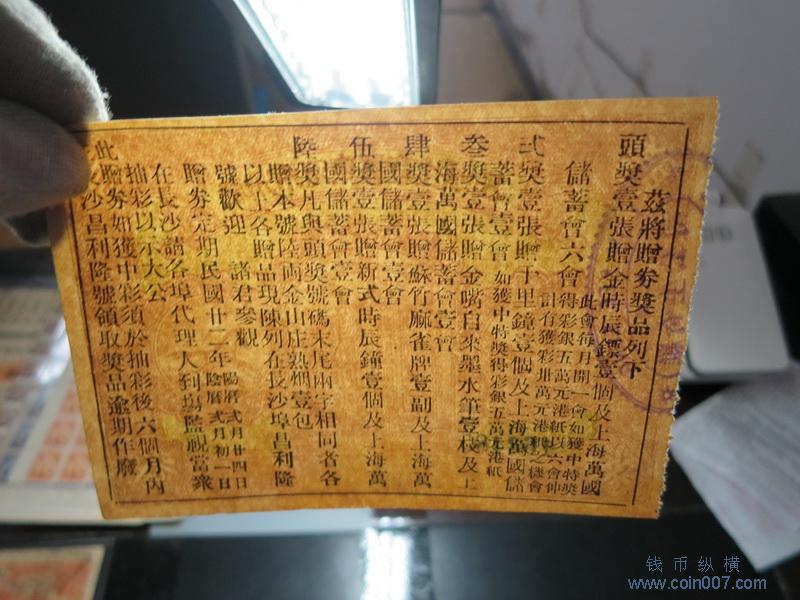 茲將贈券獎品列下
頭獎壹張贈金時辰鏢壹個及上海萬國
儲蓄會六會
此會每月開一會如獲中特獎
得彩銀五萬元港紙以六會伸
計有獲彩卅萬元港紙之機會
弍獎壹張贈千里鐘壹個及上海萬國儲
蓄會壹會如獲中特獎得彩銀五萬元港紙
叁獎壹張贈金嘴自來墨水筆壹枝及上
海萬國儲蓄會壹會
肆獎壹張贈蘇竹麻雀牌壹副及上海萬
國儲蓄會壹會
伍獎壹張贈新式時辰鐘壹個及上海萬
國儲蓄會壹會
陸獎凡與頭獎號碼末尾兩字相同者各
贈本號陸兩金山庄熟烟壹包
以上各贈品現陳列在長沙埠昌利隆
號歡迎 諸君參觀
贈券定期民國廿二年
陽曆弍月廿四日
陰曆弍月初一日
在長沙請各埠代理人到場監視當衆
抽彩以示大公
此贈券如獲中彩須於抽彩後六個月內
長沙昌利隆號領取獎品逾期作廢
钱币纵横
www.coin007.com